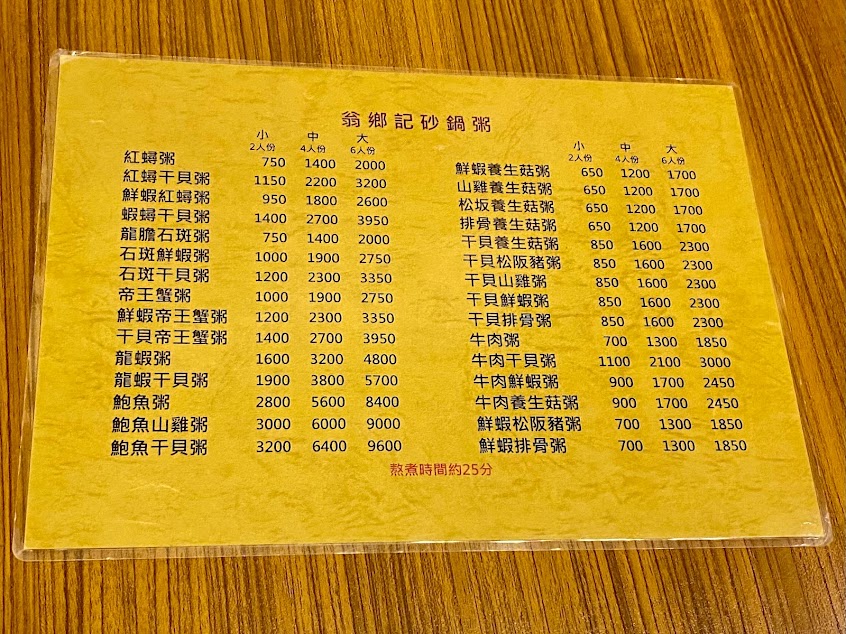 翁鄉記砂鍋粥
小 中 大
2人份 4人份 6人份
紅蟳粥 750 1400 2000
紅蟳干貝粥 1150 2200 3200
鮮蝦紅蟳粥 950 1800 2600
蝦蟳干貝粥 1400 2700 3950
龍膽石斑粥 750 1400 2000
石斑鮮蝦粥 1000 1900 2750
石斑干貝粥 1200 2300 3350
帝王蟹粥 1000 1900 2750
鮮蝦帝王蟹粥 1200 2300 3350
干貝帝王蟹粥 1400 2700 3950
龍蝦粥 1600 3200 4800
龍蝦干貝粥 1900 3800 5700
鮑魚粥 2800 5600 8400
鮑魚山雞粥 3000 6000 9000
鮑魚干貝粥 3200 6400 9600
小 中 大
2人份 4人份 6人份
鮮蝦養生菇粥 650 1200 1700
山雞養生菇粥 650 1200 1700
松坂養生菇粥 650 1200 1700
排骨養生菇粥 650 1200 1700
干貝養生菇粥 850 1600 2300
干貝松阪豬粥 850 1600 2300
干貝山雞粥 850 1600 2300
干貝鮮蝦粥 850 1600 2300
干貝排骨粥 850 1600 2300
牛肉粥 700 1300 1850
牛肉干貝粥 1100 2100 3000
牛肉鮮蝦粥 900 1700 2450
牛肉養生菇粥 900 1700 2450
鮮蝦松阪豬粥 700 1300 1850
鮮蝦排骨粥 700 1300 1850
熬煮時間約25分